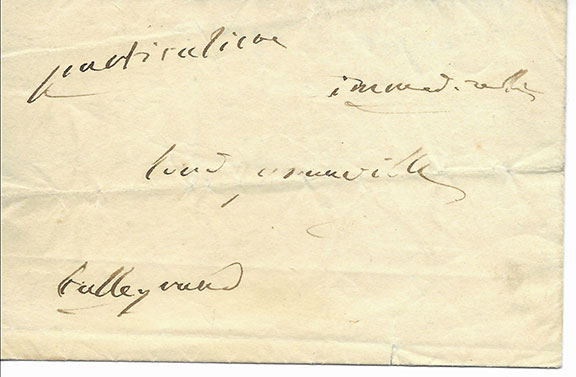 particuliere
immediatte
Lord granville
talleyrand